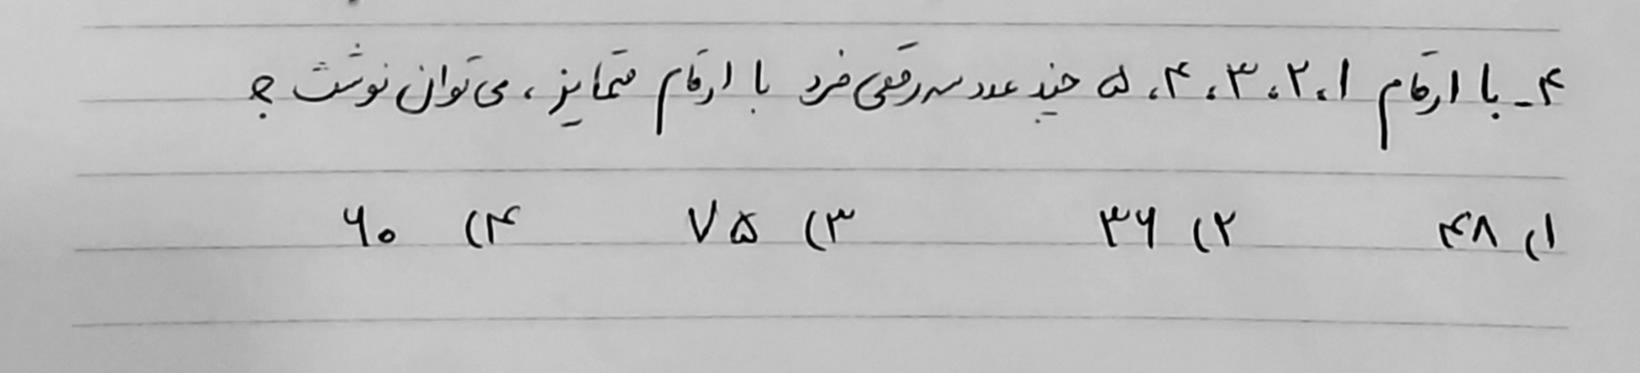 ۴- با ارقام ۱، ۲، ۳، ۴، ۵ چند عدد سه رقمی فرد با ارقام متمایز، می توان نوشت ؟
۱) ۴۸ ۲) ۳۶ ۳) ۷۵ ۴) ۶۰